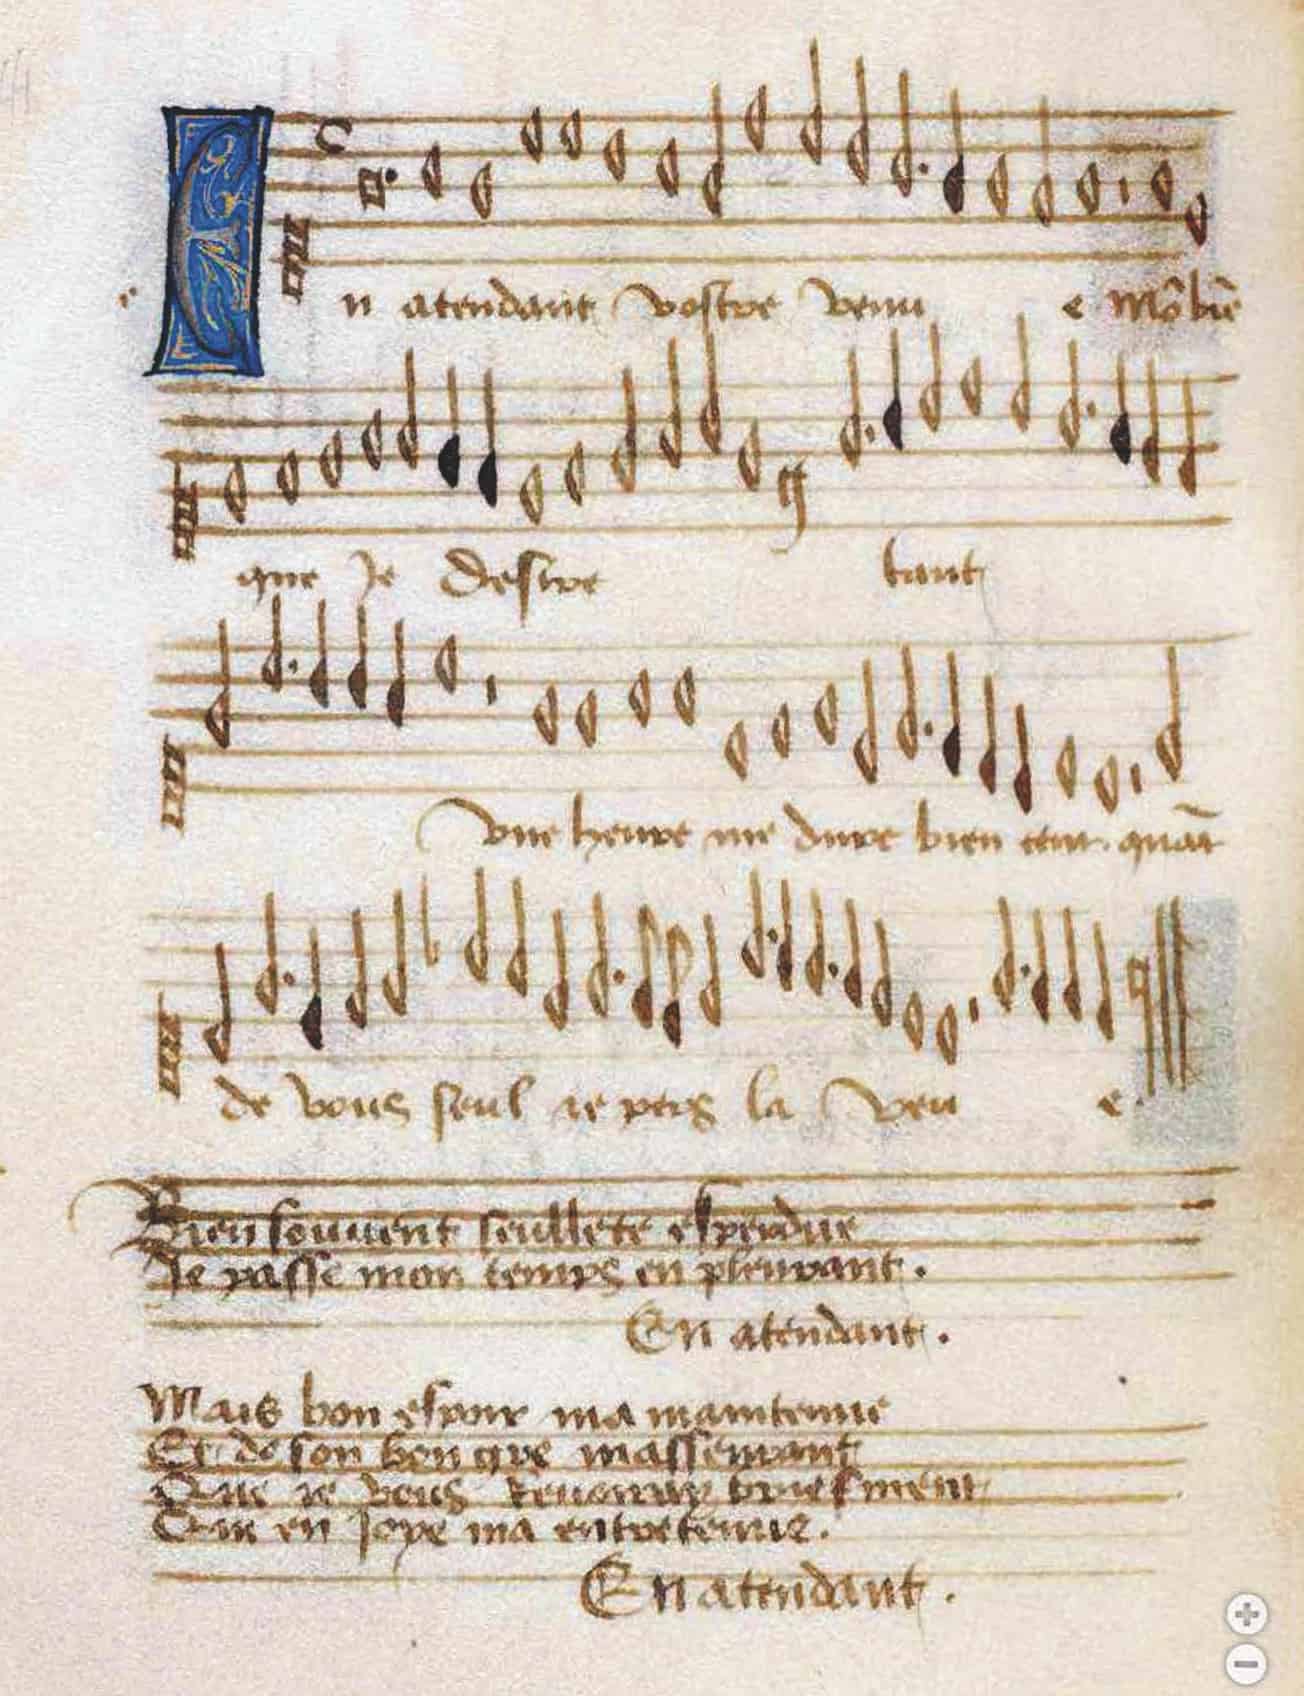 En atendant vostre venu e Mō biē
que Je desire tant
vne heure me dure bien tant quāt
de vous seul ie pers la veu e
Bien souuent seullete esperdue
Je passe mon temps en pleurant .
En atendant .
Mais bon espoir ma maintenue
Et de son bon gre masseurant
Que ie vous Reuerray briefment
Qui en Joye ma entretenue .
En atendant .